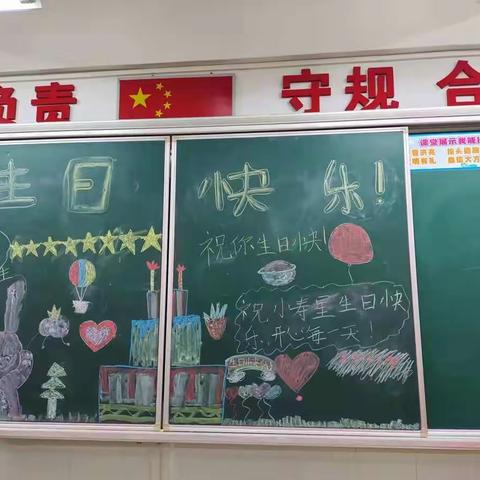 负责 守规 合
生日快乐!
课堂展示我能
祝你生日快!
祝小寿星生日快
乐,开心每一天!
生日快乐